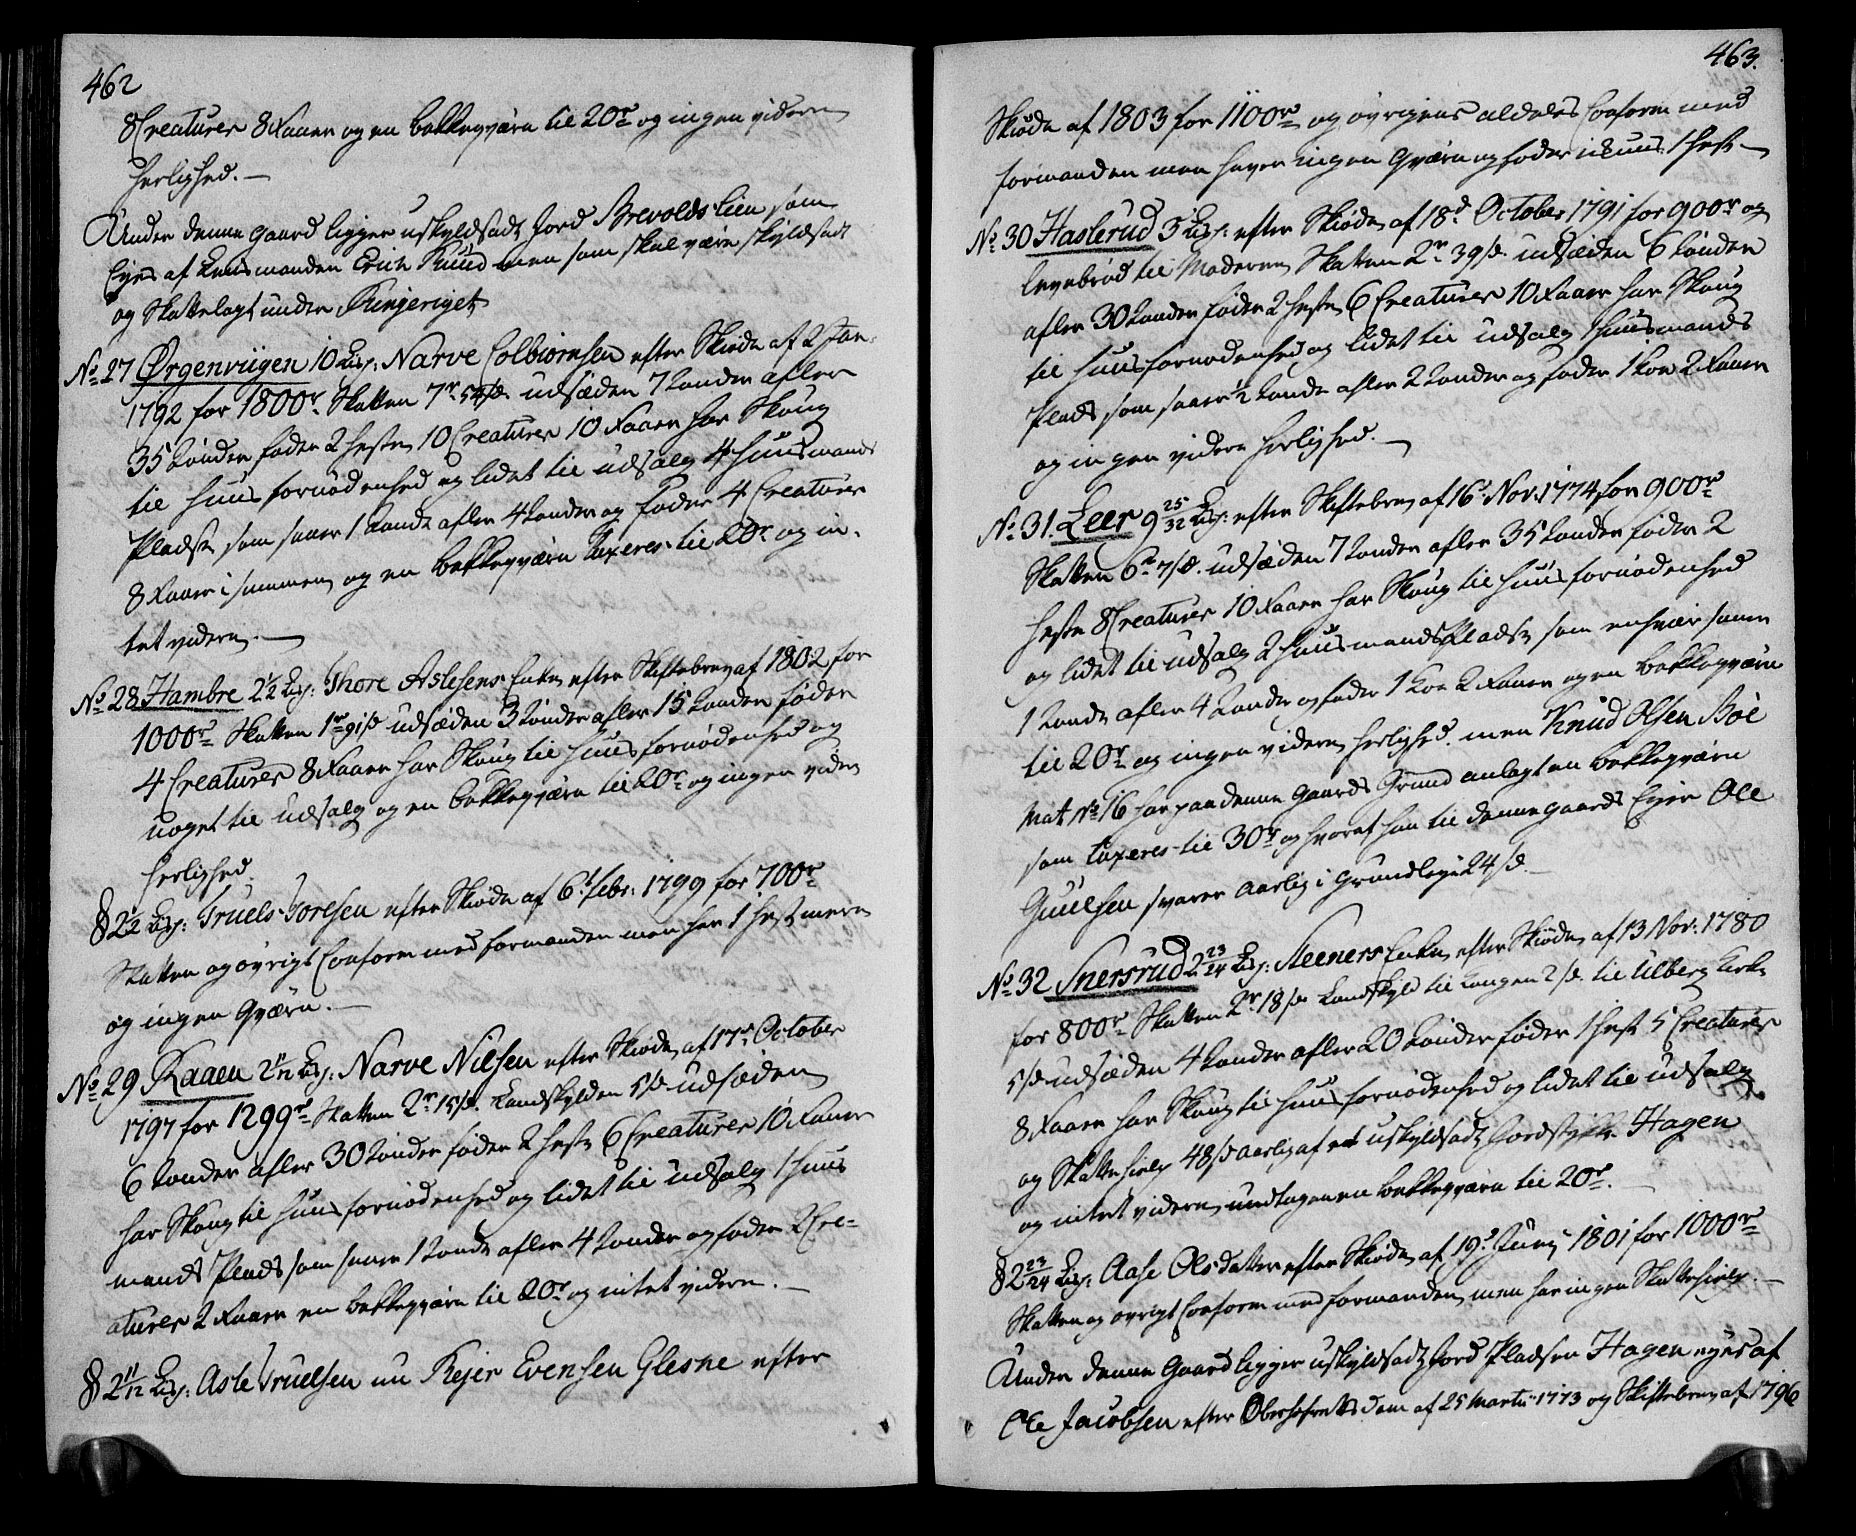 462
8 Creaturer 8 Faarer og en bekkeqværn til 20r og ingen videre
herlighed. —
Under denne Gaard ligger uskyldsadt Jord Brevolds lien som
Eyes af Lensmanden Erich Ruud men som skal være skyldsadt
og Skattelagt under Ringeriget
No 27 Ørgenviigen 10 Lisp: Narve Colbiørnsen efter Skiøde af 2 Jan:
1792 for 1800r Skatten 7r 54s. udsæden 7 tønder afler
35 tønder føder 2 heste 10 Creaturer 10 Faarer har Skoug
til huusfornødenhed og lidet til udsalg 4 huusmands
Pladse som saaer 1 tønde afler 4 tønder og føder 4 Creaturer
8 Faarer i sammen og en bekkeqværn taxeres til 20r og in-
tet videre. —
No 28 Hambre 2½ Lisp: Thore Aslesens Enke efter Skiftebrev af 1802 for
1000r Skatten 1r 91s udsæden 3 tønder afler 15 tønder føder
4 Creaturer 8 Faarer har Skoug til huusfornødenhed og
noget til udsalg og en bekkeqværn til 20r og ingen videre
herlighed.
§ 2½ Lisp: Truels Toresen efter Skiøde af 6t Febr: 1799 for 700r
Skatten og øvrigt Conform med formanden men har 1 hest mere
og ingen Qværn. —
No 29 Raaen 2 11/12 Lisp. Narve Nilsen efter Skiøde af 17d October
1797 for 1299r Skatten 2r 15s. Landskylden 5s udsæden
6 tønder afler 30 tønder føder 2 heste 6 Creaturer 10 Faarer
har Skoug til huusfornødenhed og lidet til udsalg 1 huus
mands Plads som saaer 1 tønde afler 4 tønder og føder 2 Cre-
aturer 2 Faarer en bekkeqværn til 20r og intet videre. —
§ 2 11/12 Lisp: Asle Truelsen nu Rejer Evensen Glesne efter
463.
Skiøde af 1803 for 1100r og øvrigens aldeles Conform med
formanden men haver ingen Qværn og føder ikkuns 1 hest —
No 30 Haslerud 3 Lisp: efter Skiøde af 18d October 1791 for 900r og
levebrød til Moderen Skatten 2r 39s. udsæden 6 tønder
afler 30 tønder føder 2 heste 6 Creaturer 10 Faarer har Skoug
til huusfornødenhed og lidet til udsalg 1 huusmands
Plads som saaer ½ tønde afler 2 tønder og føder 1 koe 2 Faarer
og ingen videre herlighed. —
No 31. Leer 9 25/32 Lisp: efter Skiftebrev af 16d Nov: 1774 for 900r
Skatten 6r 7s. udsæden 7 tønder afler 35 tønder føder 2
heste 8 Creaturer 10 Faarer har Skoug til huusfornødenhed
og lidet til udsalg 2 huusmands Pladse som enhver saaer
1 tønde afler 4 tønder og føder 1 koe 2 Faarer og en bekkeqværn
til 20r og ingen videre herlighed. men Knud Olsen Böe
Mat No 16 har paa denne Gaards Grund anlagt en bekkeqværn
som taxeres til 30r og hvoraf han til denne gaards Eyer Ole
Guulsen svarer aarlig i Grundleye 24s. —
No 32 Snersrud 2 23/24 Lisp: Steeners Enke efter Skiøde af 13 Nov: 1780
for 800r Skatten 2r 18s Landskyld til Kongen 2s. til Ulberg kirke
5s udsæden 4 tønder afler 20 tønder føder 1 hest 5 Creaturer
8 Faarer har Skoug til huusfornødenhed og lidet til udsalg
og Skattehielp 48s aarlig af et uskyldsadt Jordstykke Hagen
og intet videre undtagen en bekkeqværn til 20r. —
§ 2 23/24 Lisp: Aase Olsdatter efter Skiøde af 19d Junij 1801 for 1000r
Skatten og øvrigt Conform med formanden men har ingen Skattehielp. —
Under denne Gaard ligger uskyldsadt Jord Pladsen Hagen eyes af
Ole Jacobsen efter Oberhofrets dom af 25 Martii 1773 og Skiftebrev af 1796